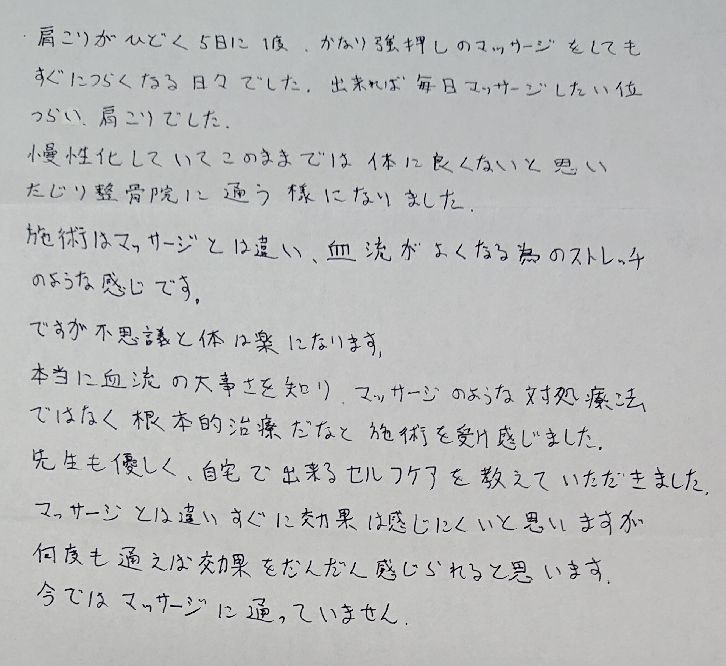 肩こりがひどく5日に1度、かなり強押しのマッサージをしても
すぐにつらくなる日々でした。出来れば毎日マッサージしたい位
つらい、肩こりでした。
慢性化していてこのままでは体に良くないと思い
たじり整骨院に通う様になりました。
施術はマッサージとは違い、血流がよくなる為のストレッチ
のような感じです。
ですが不思議と体は楽になります。
本当に血流の大事さを知り、マッサージのような対処療法
ではなく根本的治療だなと施術を受け感じました。
先生も優しく、自宅で出来るセルフケアを教えていただきました。
マッサージとは違いすぐに効果は感じにくいと思いますが
何度も通えば効果をだんだん感じられると思います。
今ではマッサージに通っていません。